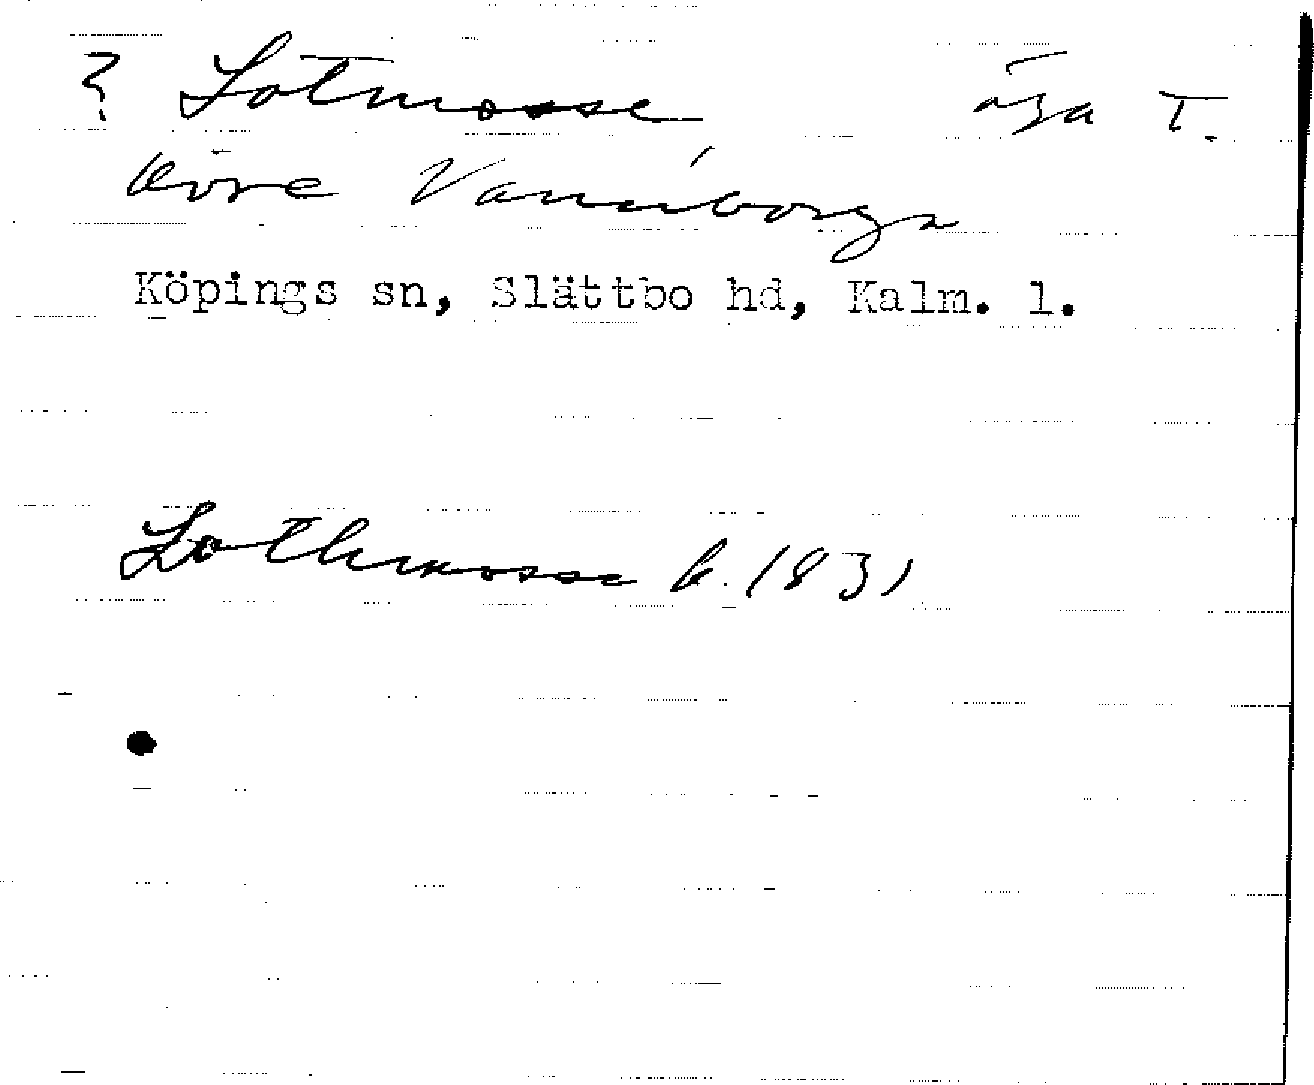 ? Lotmosse äga T.
Övre Vannborga
Köpings sn, Slättbo hd, Kalm. l.
Lothmosse b. 1831